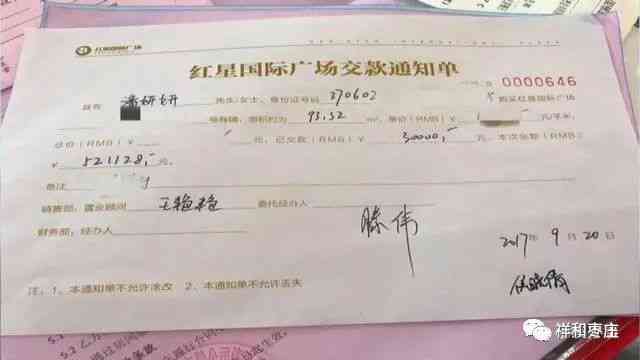 红星国际广场
红星国际广场交款通知单
0000646
兹有 妍妍 先生/女士，身份证号码 370602 购买红星国际广场
号商铺，面积约为 93.52 m²，单价（RMB）¥ 元/平米，
总价（RMB）¥ 元，已交款（RMB）¥ 30000，- 元，本次余款（RMB）
¥ 521128，- 元。
备注
销售部：置业顾问 王艳艳 委托经办人 滕伟
财务部：经办人
2017年 9月 20日
注：1、本通知单不允许涂改 2、本通知单不允许丢失
祥和枣庄